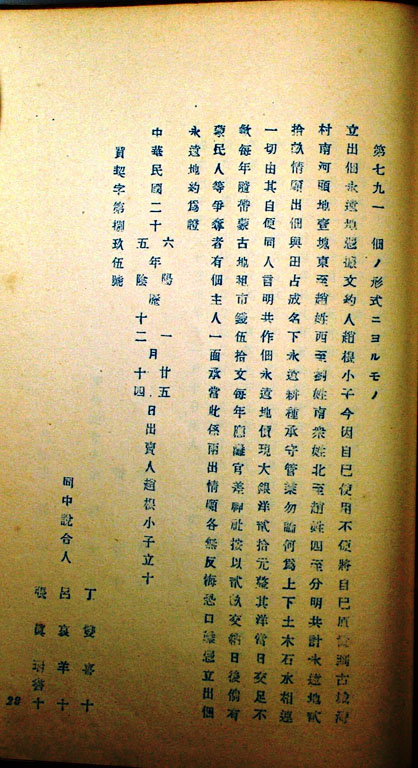 第七九一 佃ノ形式ニヨルモノ
立出佃永遠地憑據文約人趙根小子今因自己使用不便將自己原置到古城灣
村南河頭地壹塊東至趙姓西至劉姓南梁姓北至趙姓四至分明共計永遠地貳
拾玖情願出佃與田占成名下永遠耕種承守管業勿論何為上下土木石水相連
一切由其自便同人言明共作佃永遠地價現大銀洋貳拾元整其洋當日交足不
欠每年隨帶蒙古地租市錢伍拾文每年應攤官差神社按以貳玖交結日後倘有
蒙民人等爭奪者有佃主人一面承當此係兩出情願各無反悔恐口無憑立出佃
永遠地約為證
中華民國二十六五年陽陰曆一十二月廿五十四日出賣人趙根小子立十
買契字第捌玖伍號
同中說合人
丁雙喜十
呂哀羊十
張 十
28